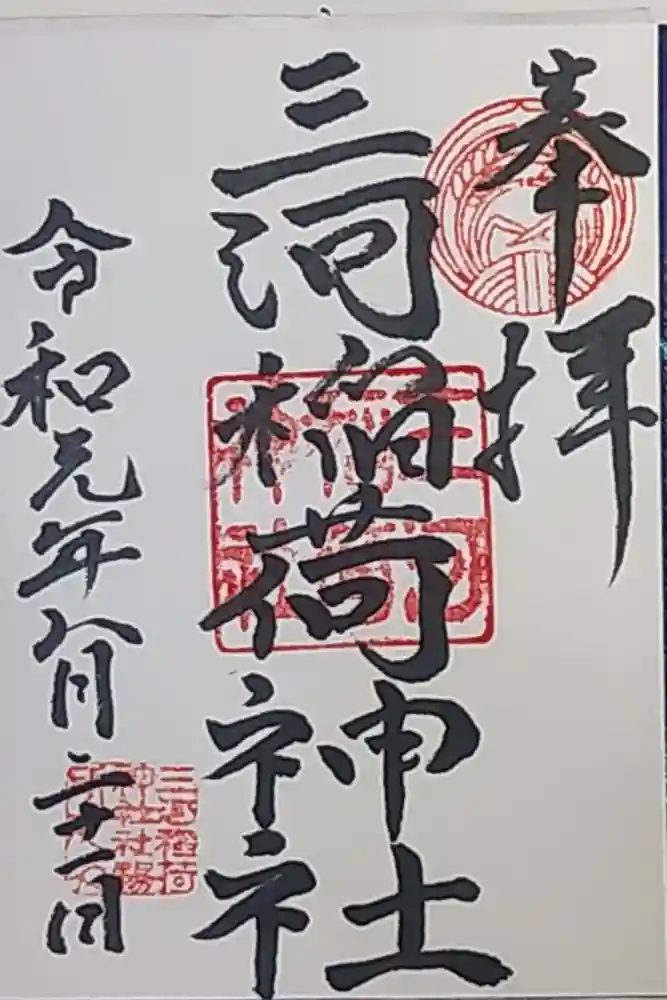 奉拝
三河稲荷神社
令和元年八月二十一日
三河稲荷
神社社務